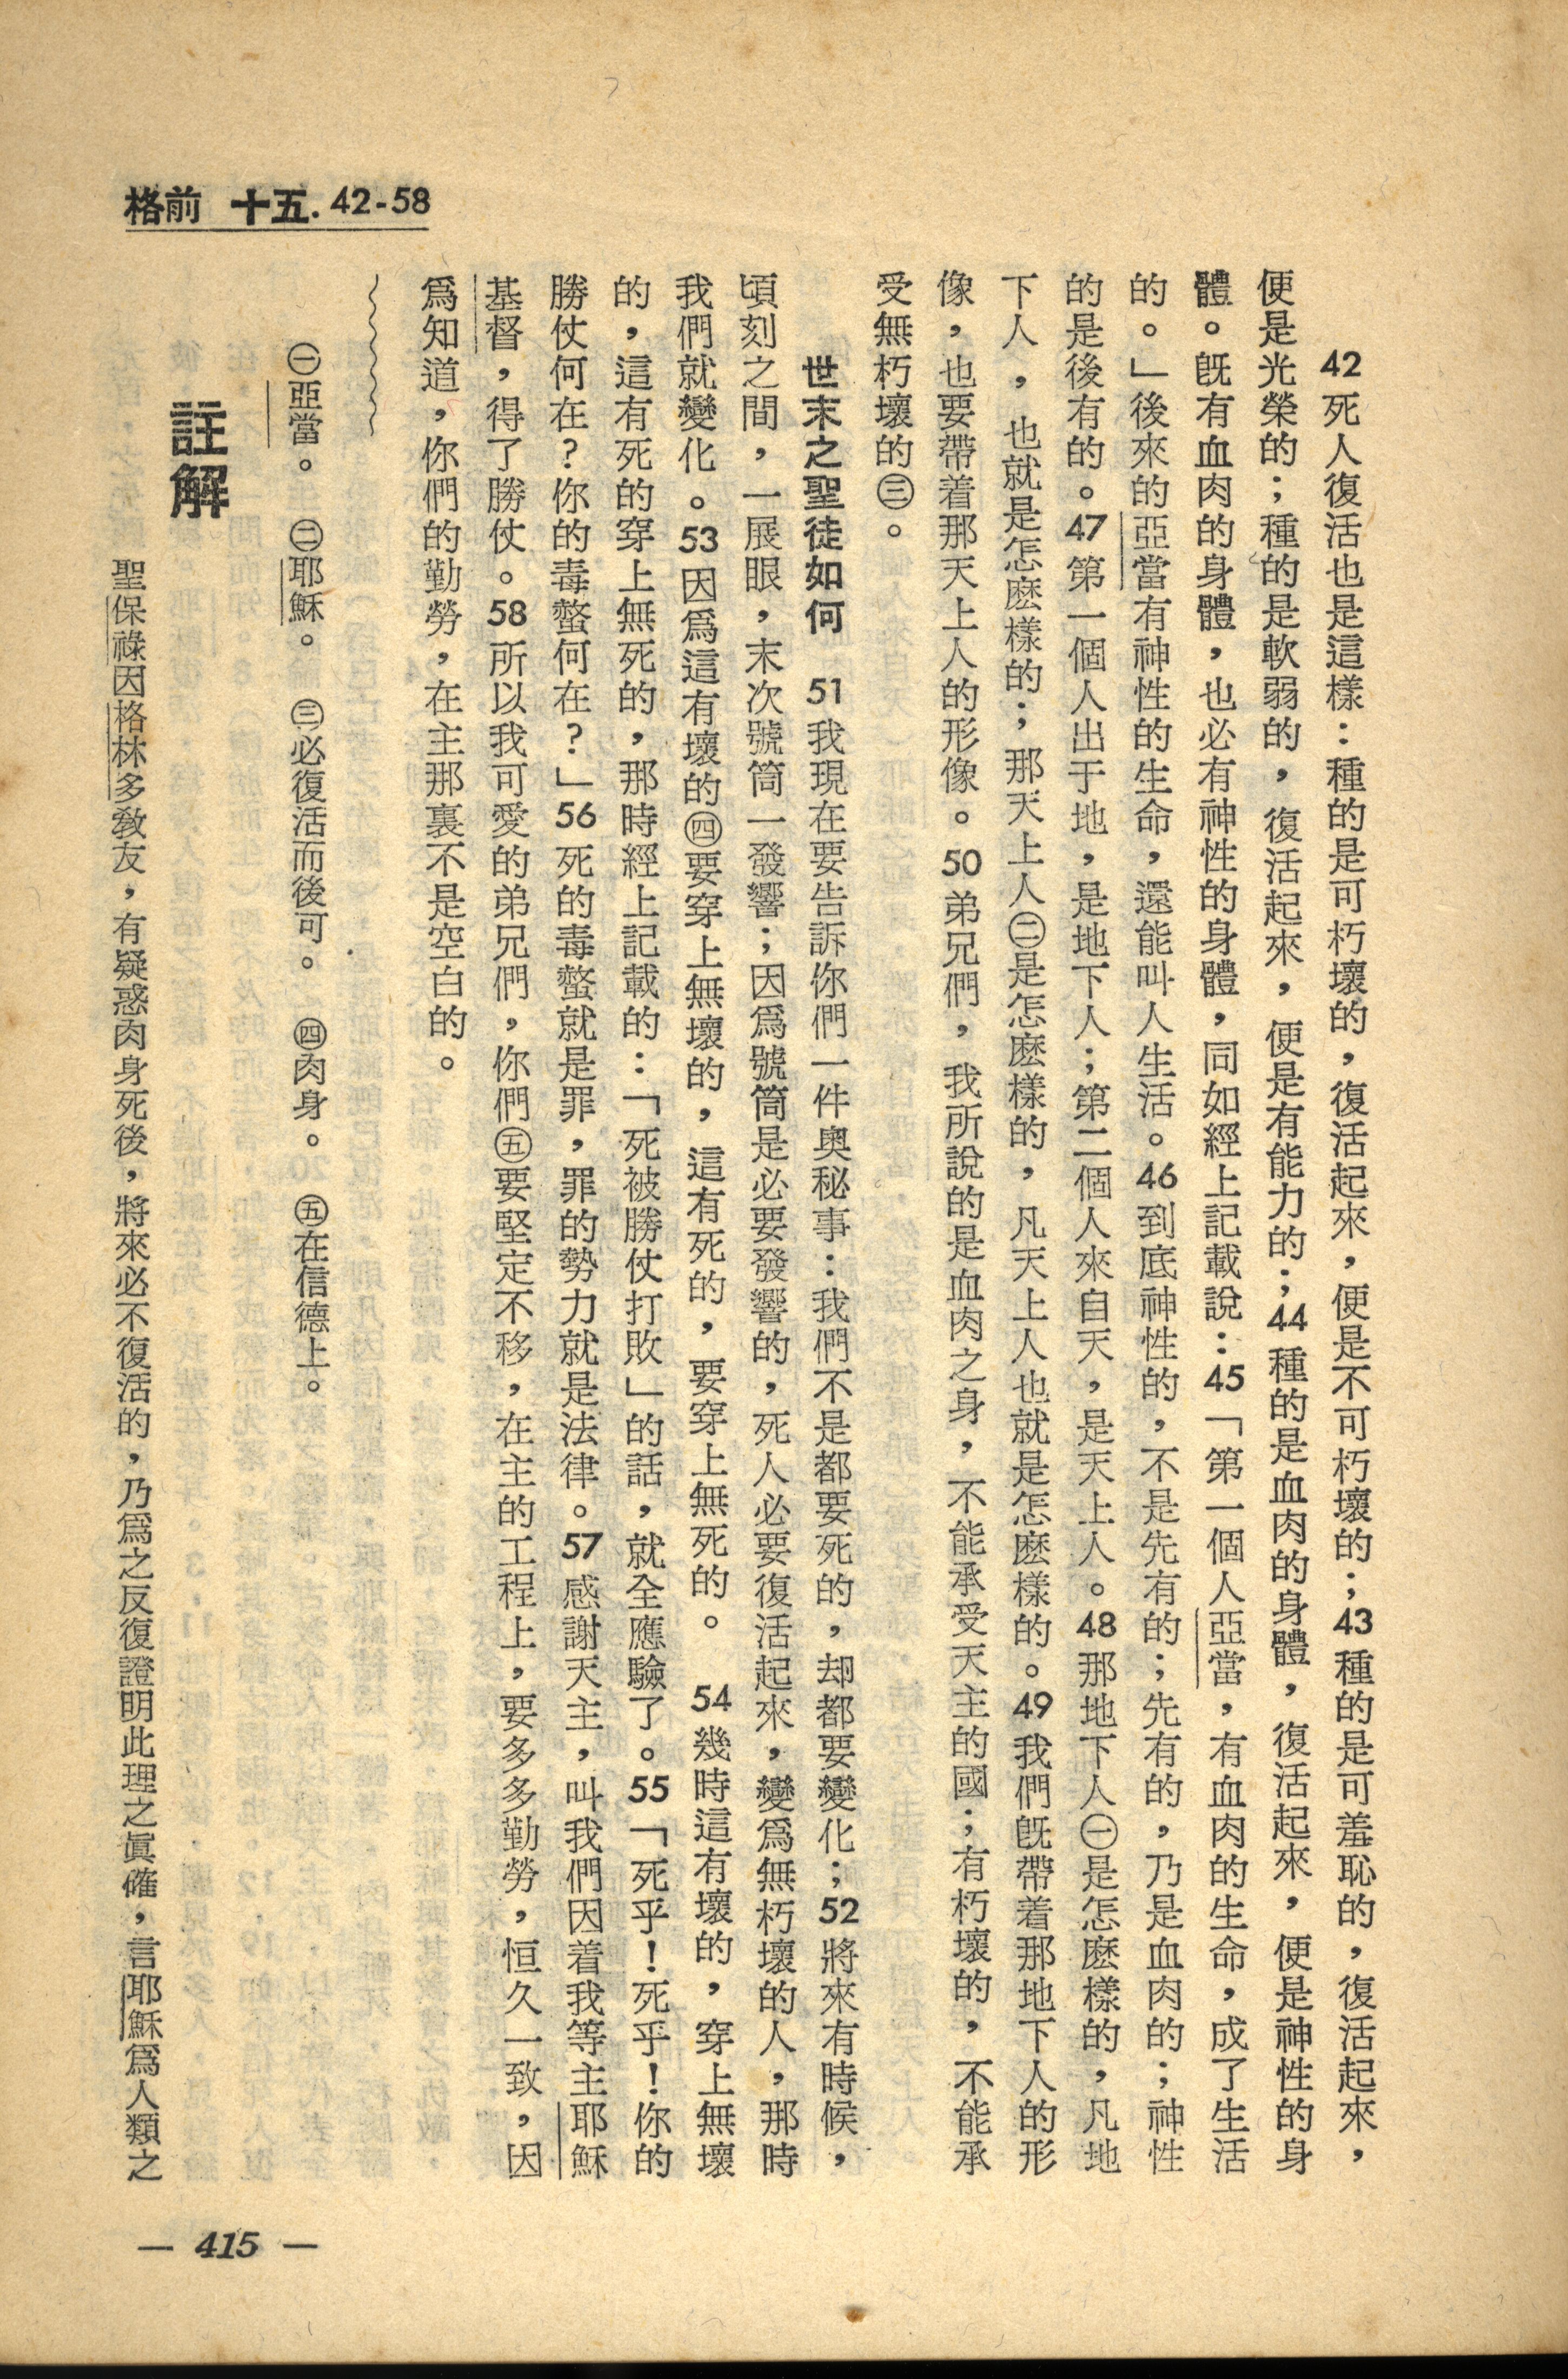 格前 十五. 42-58
42死人復活也是這樣：種的是可朽壞的，復活起來，便是不可朽壞的；43種的是可羞恥的，復活起來，
便是光榮的；種的是軟弱的，復活起來，便是有能力的；44種的是血肉的身體，復活起來，便是神性的身
體。旣有血肉的身體，也必有神性的身體，同如經上記載說：45「第一個人亞當，有血肉的生命，成了生活
的。」後來的亞當有神性的生命，還能叫人生活。46到底神性的，不是先有的；先有的，乃是血肉的；神性
的是後有的。47第一個人出于地，是地下人；第二個人來自天，是天上人。48那地下人㊀是怎麽樣的，凡地
下人，也就是怎麽樣的；那天上人㊁是怎麽樣的，凡天上人也就是怎麽樣的。49我們旣帶着那地下人的形
像，也要帶着那天上人的形像。50弟兄們，我所說的是血肉之身，不能承受天主的國；有朽壞的，不能承
受無朽壞的㊂。
世末之聖徒如何　51我現在要告訴你們一件奧秘事：我們不是都要死的，却都要變化；52將來有時候，
頃刻之間，一展眼，末次號筒一發響；因爲號筒是必要發響的，死人必要復活起來，變爲無朽壞的人，那時
我們就變化。53因爲這有壞的㊃要穿上無壞的，這有死的，要穿上無死的。54幾時這有壞的，穿上無壞
的，這有死的穿上無死的，那時經上記載的：「死被勝仗打敗」的話，就全應驗了。55「死乎！死乎！你的
勝仗何在？你的毒螫何在？」56死的毒螫就是罪，罪的勢力就是法律。57感謝天主，叫我們因着我等主耶穌
基督，得了勝仗。58所以我可愛的弟兄們，你們㊄要堅定不移，在主的工程上，要多多勤勞，恒久一致，因
爲知道，你們的勤勞，在主那裏不是空白的。
㊀亞當。　㊁耶穌。　㊂必復活而後可。　㊃肉身。　㊄在信德上。
註解
聖保祿因格林多敎友，有疑惑肉身死後，將來必不復活的，乃爲之反復證明此理之眞確，言耶穌爲人類之
— 415 —